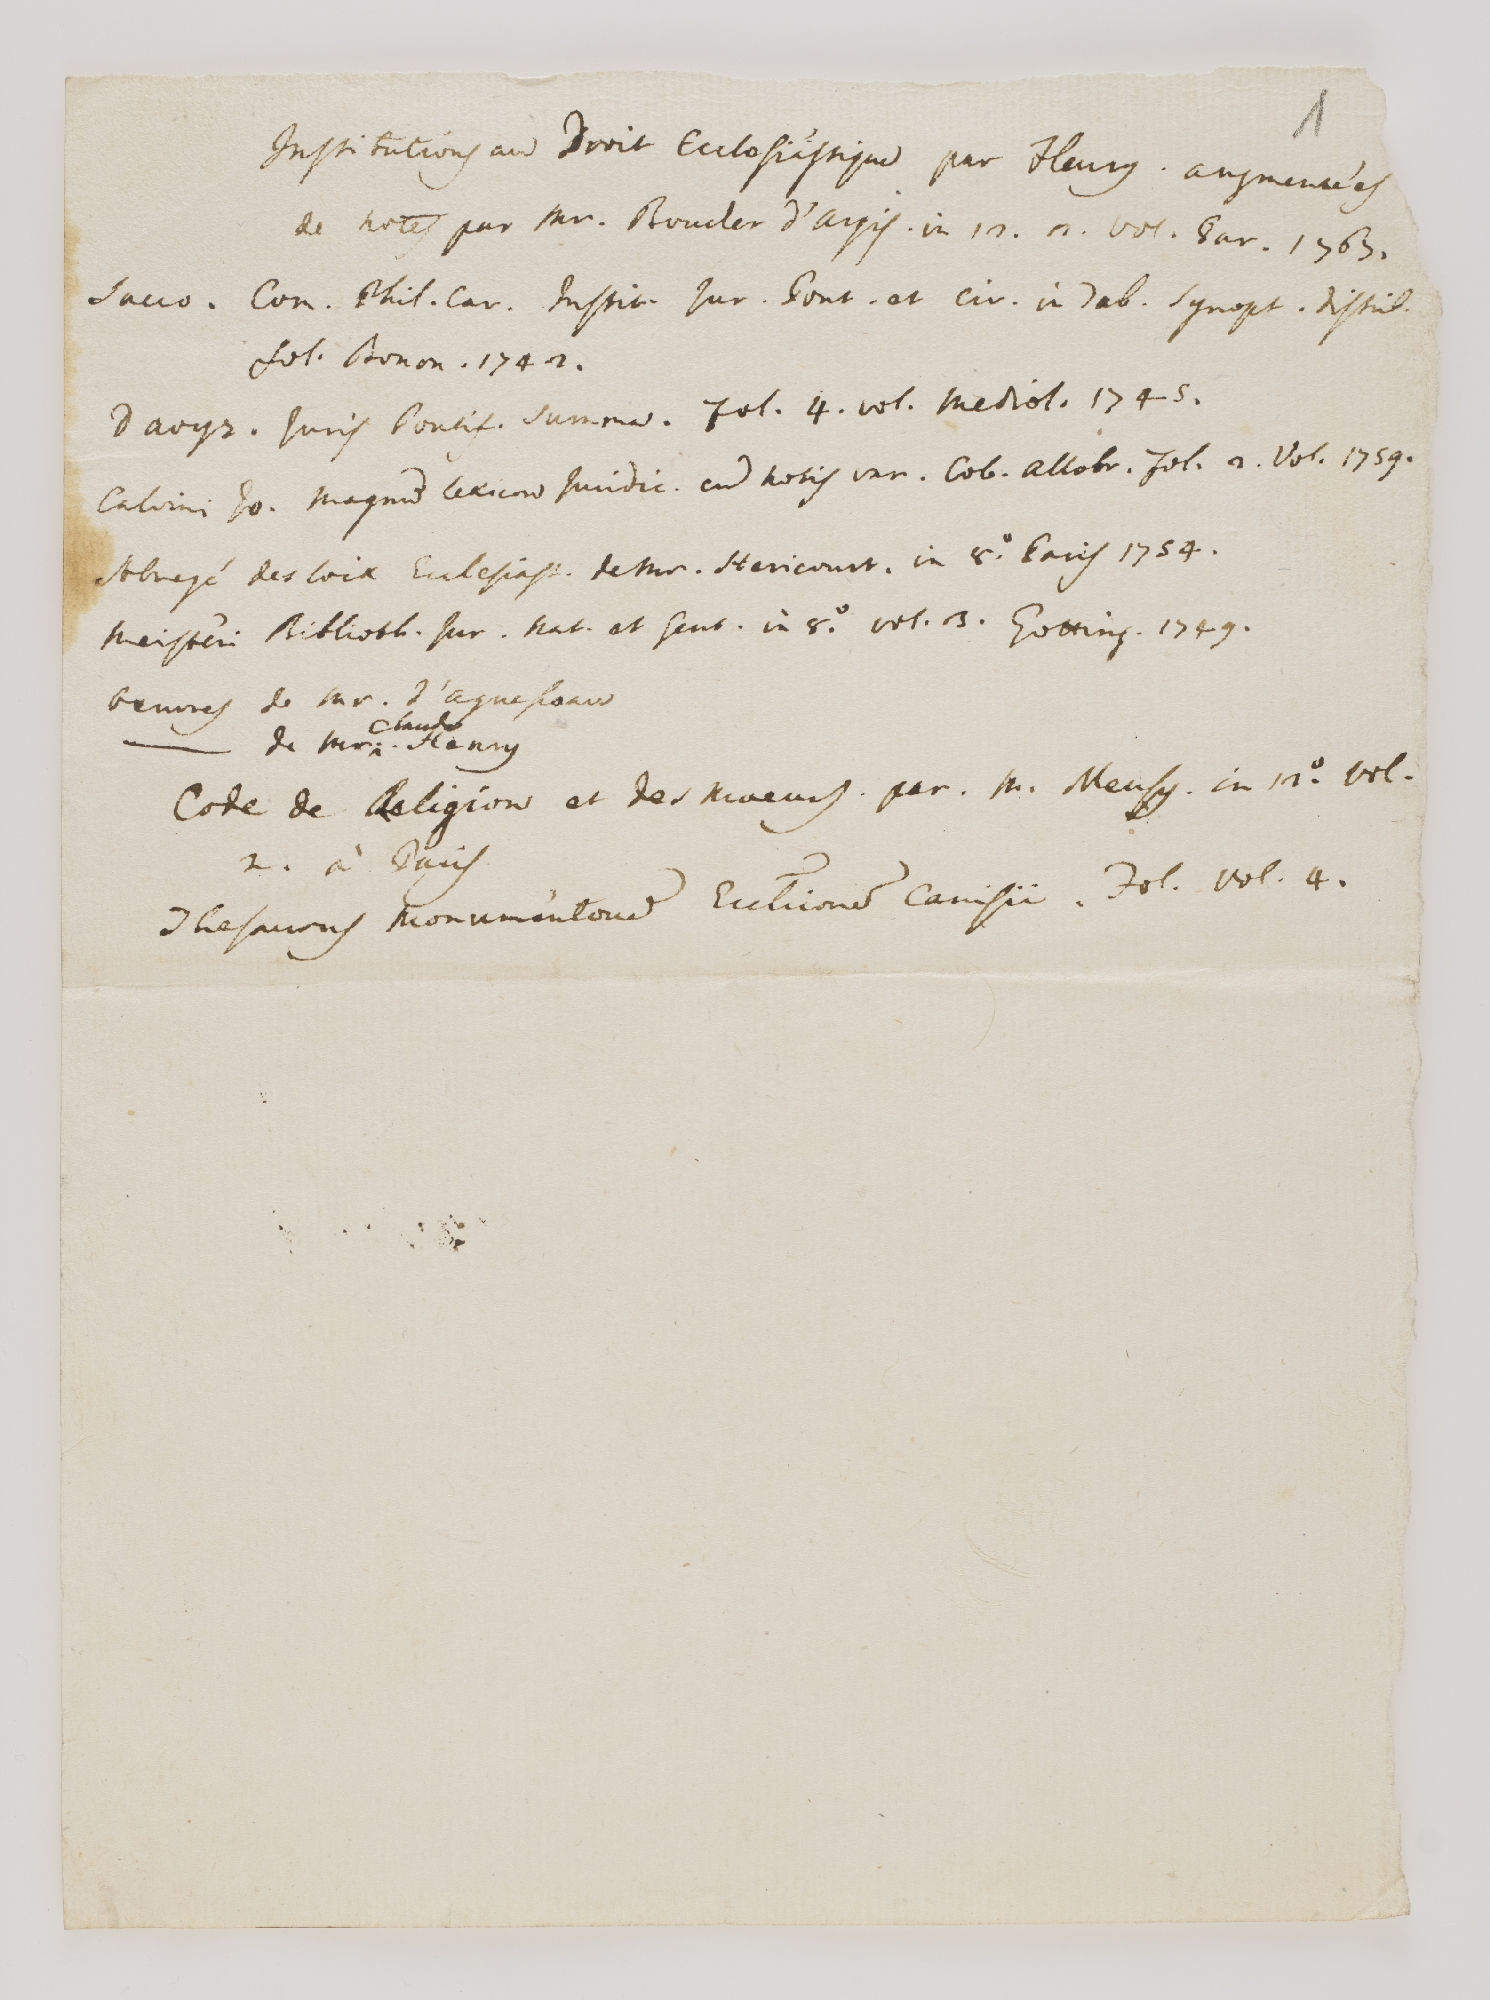 1
Institutions au Droit Ecclesiastique par Fleury. augmentées
de notes par Mr. Boucler d'Argis. in 12. 2. vol. Par. 1763.
Sacco. Com. Phil. Car. Instit. Jur. Pont. et Civ. in Tab. Synopt. distrib.
fol. Bonon. 1742.
Davyz. Juris Pontif. Summa. Fol. 4. vol. Mediol. 1745.
Calvini Jo. Magnũ Lexicon Juridic. cũ notis var. Col. Allobr. Fol. 2. Vol. 1759.
Abregé des loix Ecclesiast. de Mr. Hericourt. in 8.° Paris 1754.
Meisteri Biblioth. Jur. Nat. et Gent. in 8.° vol. 3. Gotting. 1749.
Oeuvres de Mr. d'Aguesseau
—— de Mr. Claude Henry
Code de Religion et des Moeurs. par. M. Meusy. in 12.° Vol.
2. à Paris
Thesaurus Monumentorũ Ecclicorũ Canisii. Fol. Vol. 4.